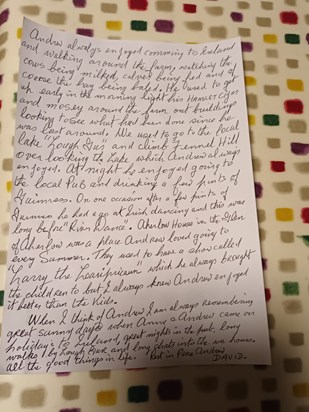 Andrew always enjoyed comming to Ireland
and walking around the farm, watching the
cows being milked, calves being fed and of
course the hay being baled. He used to get
up early in the morning light his Hamlet Cigar
and mosey around the farm out buildings
looking to see what had been done since he
was last around. We used to go to the local
lake "Lough Gur" and climb Fennel Hill
over looking the Lake which Andrew always
enjoyed. At night he enjoyed going to
the local Pub and drinking a few pints of
Guinness. On one occasion after a few pints of
Guinness he had a go at Irish dancing and this was
long before "River Dance". Atherlow House in the Glen
of Atherlow was a place Andrew loved going to
every Summer. They used to have a show called
"Larry the Leapricaun" which he always brought
the children to but I always knew Andrew enjoyed
it better than the kids.
When I think of Andrew I am always remembering
great sunny days when Anne & Andrew came on
holidays to Ireland, great nights in the pub, long
walks by Lough Gur and long chats into the wee hours.
all the good things in life. Rest in Peace Andrew
DAVID.